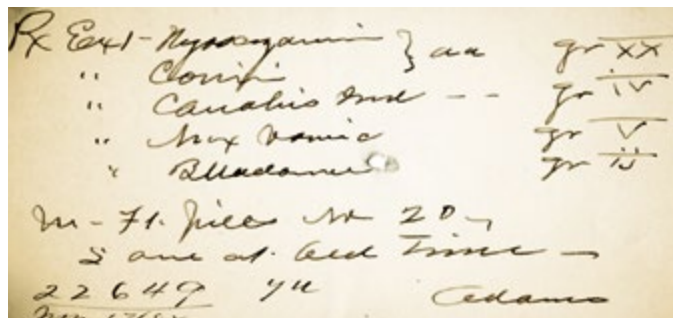 Rx Ext - Hyoscyami } aa gr XX
" Conii
" Canabis Ind - - gr iv
" Nux Vomic gr V
" Belladonna gr ij
M - Ft. Pills No 20
S one at Bed Time -
22649 Adams